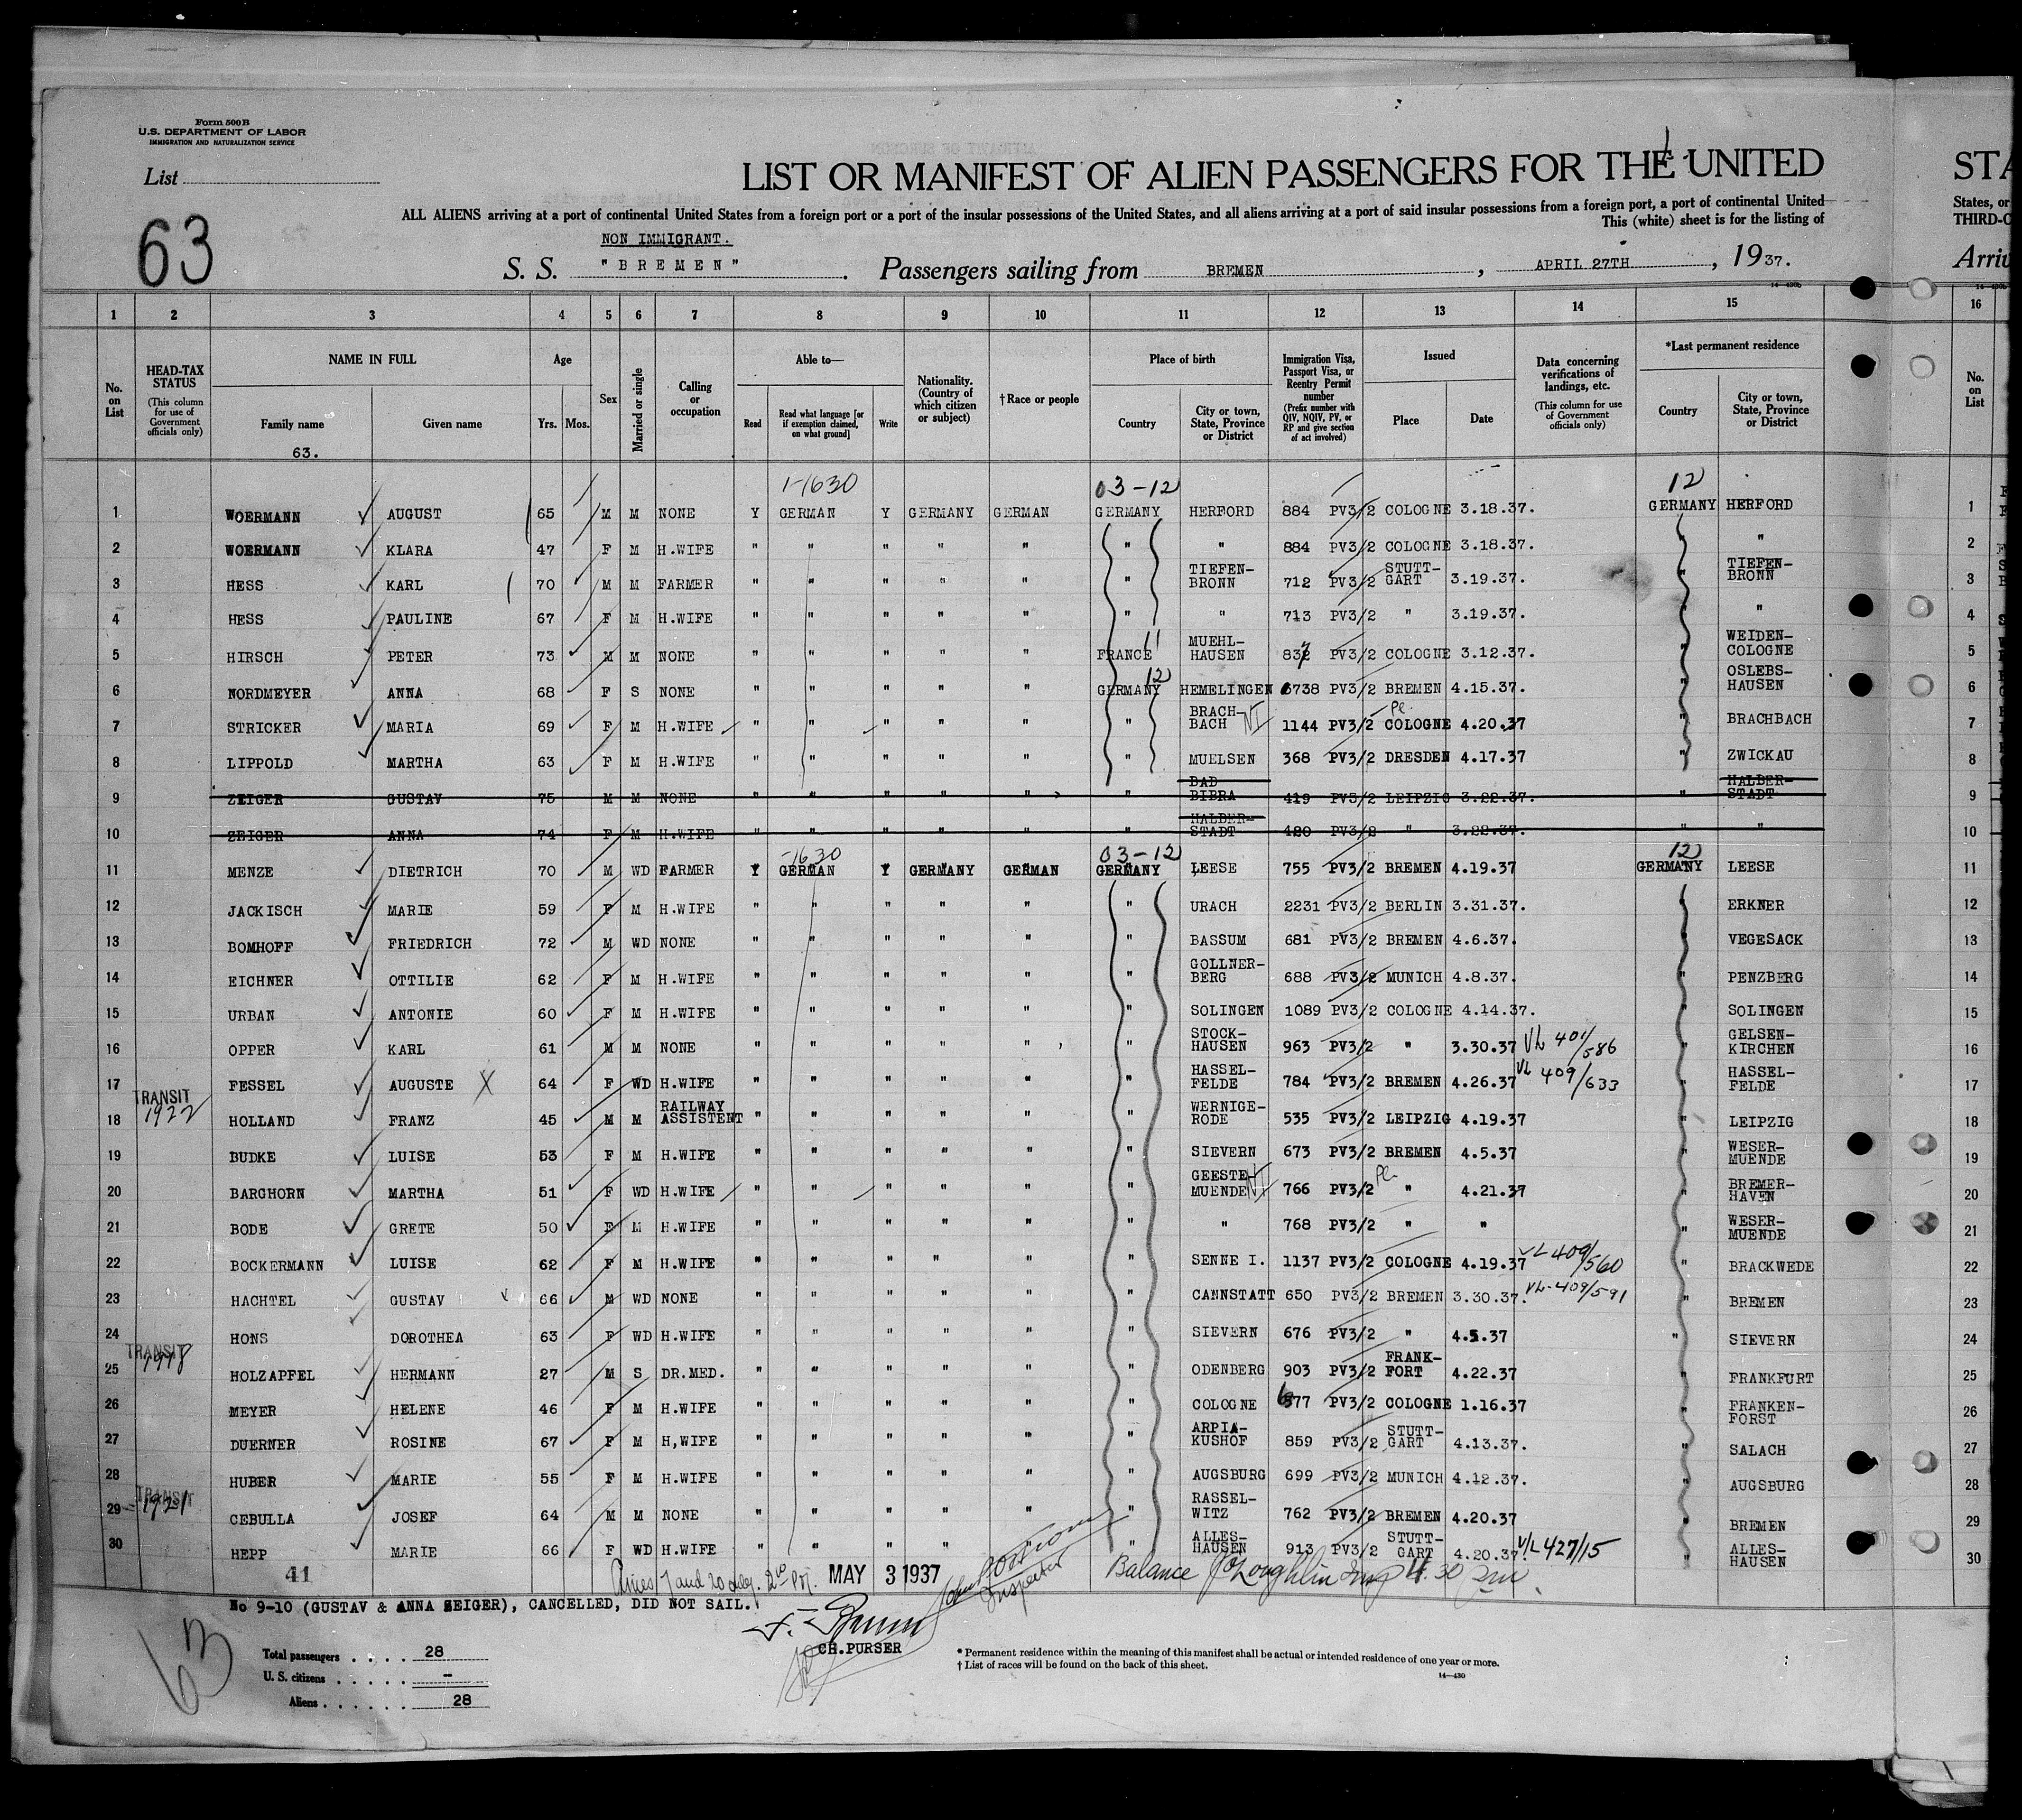 Form 500 B
U.S. DEPARTMENT OF LABOR
IMMIGRATION AND NATURALIZATION SERVICE
List
63
LIST OR MANIFEST OF ALIEN PASSENGERS FOR THE UNITED STA
ALL ALIENS arriving at a port of continental United States from a foreign port or a port of the insular possessions of the United States, and all aliens arriving at a port of said insular possessions from a foreign port, a port of continental United States, or
This (white) sheet is for the listing of THIRD-C
NON IMMIGRANT.
S. S. "BREMEN". Passengers sailing from BREMEN, APRIL 27TH, 1937. Arriv
14-430b
1 2 3 4 5 6 7 8 9 10 11 12 13 14 15 16
No. on List
HEAD-TAX STATUS (This column for use of Government officials only)
NAME IN FULL Family name Given name
63.
Age Yrs. Mos.
Sex
Married or single
Calling or occupation
Able to— Read Read what language [or if exemption claimed, on what ground] Write
Nationality. (Country of which citizen or subject)
†Race or people
Place of birth Country City or town, State, Province or District
Immigration Visa, Passport Visa, or Reentry Permit number (Prefix number with QIV, NQIV, PV, or RP and give section of act involved)
Issued Place Date
Data concerning verifications of landings, etc. (This column for use of Government officials only)
*Last permanent residence Country City or town, State, Province or District
No. on List
1-1630 03-12 12
1 WOERMANN AUGUST 65 M M NONE Y GERMAN Y GERMANY GERMAN GERMANY HERFORD 884 PV3/2 COLOGNE 3.18.37. GERMANY HERFORD 1
2 WOERMANN KLARA 47 F M H.WIFE " " " " " " " 884 PV3/2 COLOGNE 3.18.37. " " 2
3 HESS KARL 70 M M FARMER " " " " " " TIEFEN-BRONN 712 PV3/2 STUTT-GART 3.19.37. " TIEFEN-BRONN 3
4 HESS PAULINE 67 F M H.WIFE " " " " " " " 713 PV3/2 " 3.19.37. " " 4
11
5 HIRSCH PETER 73 M M NONE " " " " " FRANCE MUEHL-HAUSEN 837 PV3/2 COLOGNE 3.12.37. " WEIDEN-COLOGNE 5
12
6 NORDMEYER ANNA 68 F S NONE " " " " " GERMANY HEMELINGEN 6738 PV3/2 BREMEN 4.15.37. " OSLEBS-HAUSEN 6
7 STRICKER MARIA 69 F M H.WIFE " " " " " " BRACH-BACH NI 1144 PV3/2 COLOGNE 4.20.37 " BRACHBACH 7
8 LIPPOLD MARTHA 63 F M H.WIFE " " " " " " MUELSEN 368 PV3/2 DRESDEN 4.17.37 " ZWICKAU 8
9 ZEIGER GUSTAV 75 M M NONE " " " " " " BAD BIBRA 419 PV3/2 LEIPZIG 3.22.37. " HALBER-STADT 9
10 ZEIGER ANNA 74 F M H.WIFE " " " " " " HALBER-STADT 420 PV3/2 " 3.22.37. " " 10
-1630 03-12 12
11 MENZE DIETRICH 70 M WD FARMER Y GERMAN Y GERMANY GERMAN GERMANY LEESE 755 PV3/2 BREMEN 4.19.37 GERMANY LEESE 11
12 JACKISCH MARIE 59 F M H.WIFE " " " " " " URACH 2231 PV3/2 BERLIN 3.31.37. " ERKNER 12
13 BOMHOFF FRIEDRICH 72 M WD NONE " " " " " " BASSUM 681 PV3/2 BREMEN 4.6.37. " VEGESACK 13
14 EICHNER OTTILIE 62 F M H.WIFE " " " " " " GOLLNER-BERG 688 PV3/2 MUNICH 4.8.37. " PENZBERG 14
15 URBAN ANTONIE 60 F M H.WIFE " " " " " " SOLINGEN 1089 PV3/2 COLOGNE 4.14.37. " SOLINGEN 15
16 OPPER KARL 61 M M NONE " " " " " " STOCK-HAUSEN 963 PV3/2 " 3.30.37 VL 401/586 " GELSEN-KIRCHEN 16
17 FESSEL AUGUSTE X 64 F WD H.WIFE " " " " " " HASSEL-FELDE 784 PV3/2 BREMEN 4.26.37 VL 409/633 " HASSEL-FELDE 17
TRANSIT 1922
18 HOLLAND FRANZ 45 M M RAILWAY ASSISTENT " " " " " " WERNIGE-RODE 535 PV3/2 LEIPZIG 4.19.37 " LEIPZIG 18
19 BUDKE LUISE 53 F M H.WIFE " " " " " " SIEVERN 673 PV3/2 BREMEN 4.5.37 " WESER-MUENDE 19
20 BARGHORN MARTHA 51 F WD H.WIFE " " " " " " GEESTE-MUENDE NI 766 PV3/2 " 4.21.37 " BREMER-HAVEN 20
21 BODE GRETE 50 F M H.WIFE " " " " " " " 768 PV3/2 " " " WESER-MUENDE 21
22 BOCKERMANN LUISE 62 F M H.WIFE " " " " " " SENNE I. 1137 PV3/2 COLOGNE 4.19.37 VL 409/560 " BRACKWEDE 22
23 HACHTEL GUSTAV 66 M WD NONE " " " " " " CANNSTATT 650 PV3/2 BREMEN 3.30.37. VL-409/591 " BREMEN 23
24 HONS DOROTHEA 63 F WD H.WIFE " " " " " " SIEVERN 676 PV3/2 " 4.5.37 " SIEVERN 24
TRANSIT 1918
25 HOLZAPFEL HERMANN 27 M S DR.MED. " " " " " " ODENBERG 903 PV3/2 FRANK-FORT 4.22.37 " FRANKFURT 25
26 MEYER HELENE 46 F M H.WIFE " " " " " " COLOGNE 677 PV3/2 COLOGNE 1.16.37 " FRANKEN-FORST 26
27 DUERNER ROSINE 67 F M H,WIFE " " " " " " ARPIA-KUSHOF 859 PV3/2 STUTT-GART 4.13.37. " SALACH 27
28 HUBER MARIE 55 F M H.WIFE " " " " " " AUGSBURG 699 PV3/2 MUNICH 4.12.37. " AUGSBURG 28
TRANSIT 1921
29 CEBULLA JOSEF 64 M M NONE " " " " " " RASSEL-WITZ 762 PV3/2 BREMEN 4.20.37 " BREMEN 29
30 HEPP MARIE 66 F WD H.WIFE " " " " " " ALLES-HAUSEN 913 PV3/2 STUTT-GART 4.20.37. V/L 427/15 " ALLES-HAUSEN 30
41
7 and 20 MAY 3 1937 Inspector Balance Loughlin Insp 4.30 pm
No 9-10 (GUSTAV & ANNA ZEIGER), CANCELLED, DID NOT SAIL.
CH.PURSER
63
Total passengers .... 28
U. S. citizens ..... -
Aliens ...... 28
* Permanent residence within the meaning of this manifest shall be actual or intended residence of one year or more.
† List of races will be found on the back of this sheet.
14-430